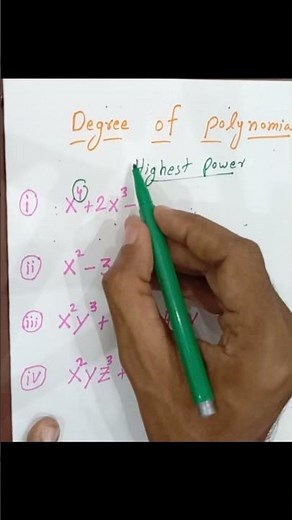 Degree of polynomia
Highest power
(i) x⁴+2x³-
(ii) x²-3
(iii) x²y³+ y
(iv) x²yz³+